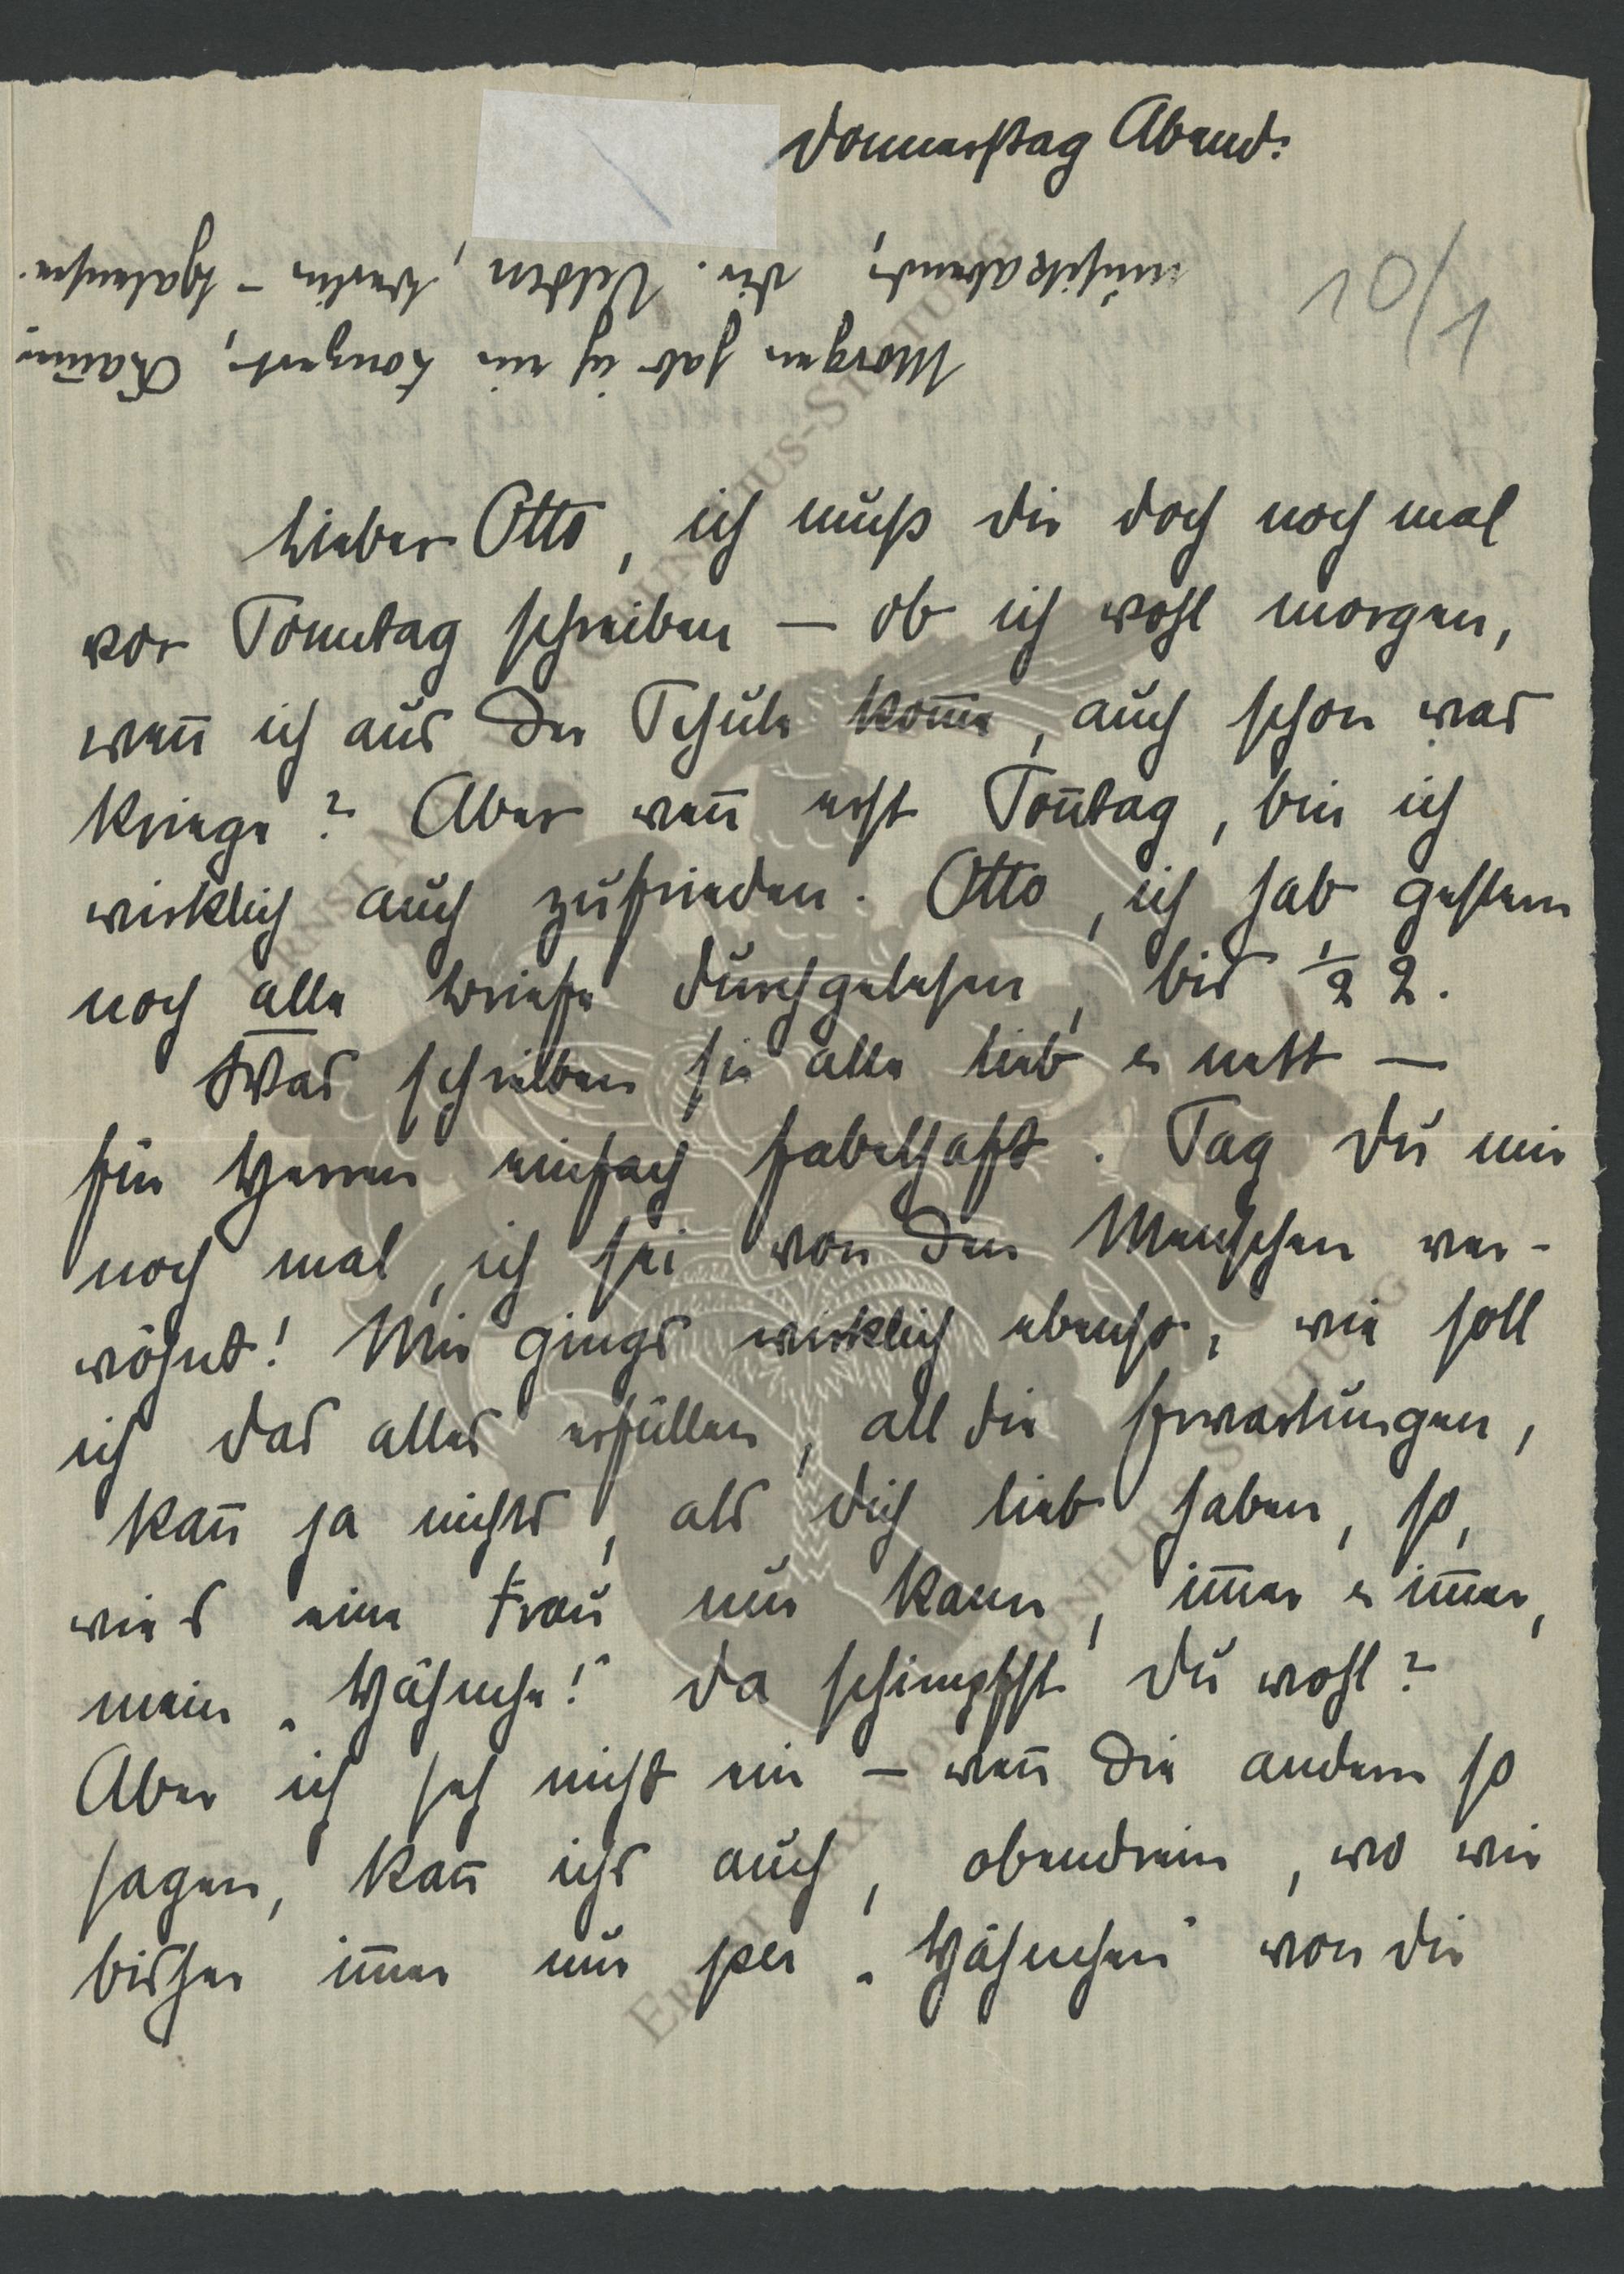 Donnerstag Abend:
10/1
Morgen hab ich ein Konzert, Kammer
musikabend, dir. Velden, Berlin - Halensee.
Lieber Otto, ich muß dir doch noch mal
vor Sonntag schreiben — ob ich wohl morgen,
wen̅ ich aus der Schule kom̅e, auch schon was
kriege? Aber wen̅ erst Son̅tag, bin ich
wirklich auch zufrieden. Otto, ich hab gestern
noch alle Briefe durchgelesen, bis ½ 2.
Was schreiben sie alle lieb & nett —
für Herren einfach fabelhaft. Sag Du mir
noch mal, ich sei von den Menschen ver-
wöhnt! Mir gings wirklich ebenso, wie soll
ich das alles erfüllen, all die Erwartungen,
kan̅ ja nichts, als dich lieb haben, so,
wie's eine Frau nur kann, im̅er & im̅er,
mein „Hähnche!" Da schimpfst Du wohl?
Aber ich seh nicht ein — wen̅ die andern so
sagen, kan̅ ichs auch, obendrein, wo wir
bisher im̅er nur per „Hähnchen" von dir
ERNST MAX VON GRUNELIUS-STIFTUNG
ERNST MAX VON GRUNELIUS-STIFTUNG